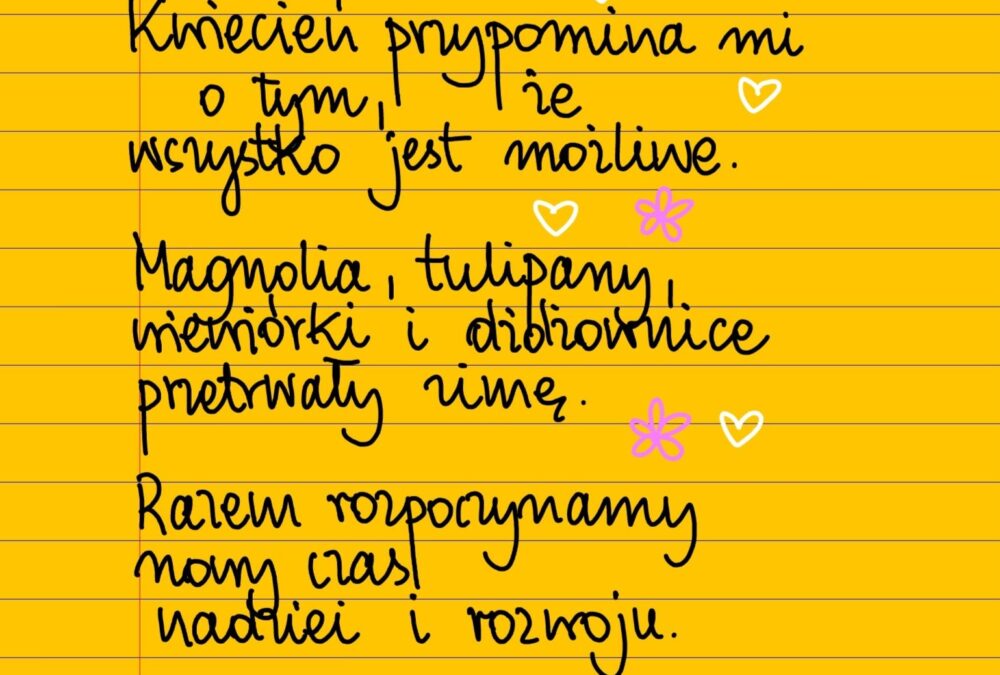 Kwiecień przypomina mi
o tym, że
wszystko jest możliwe.
Magnolia, tulipany,
wiewiórki i dżdżownice
przetrwały zimę.
Razem rozpoczynamy
nowy czas,
nadziei i rozwoju.